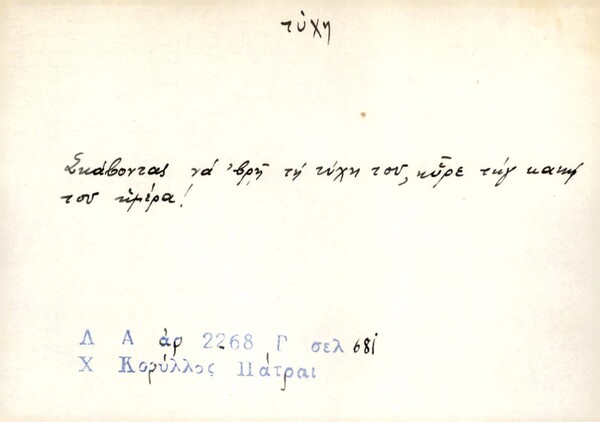 τύχη
Σκάβοντας νά 'βρῇ τή τύχη του, ηὗρε τήν κακή
του ἡμέρα!
Λ Α ἀρ 2268 Γ σελ 681
Χ Κορύλλος Πάτραι